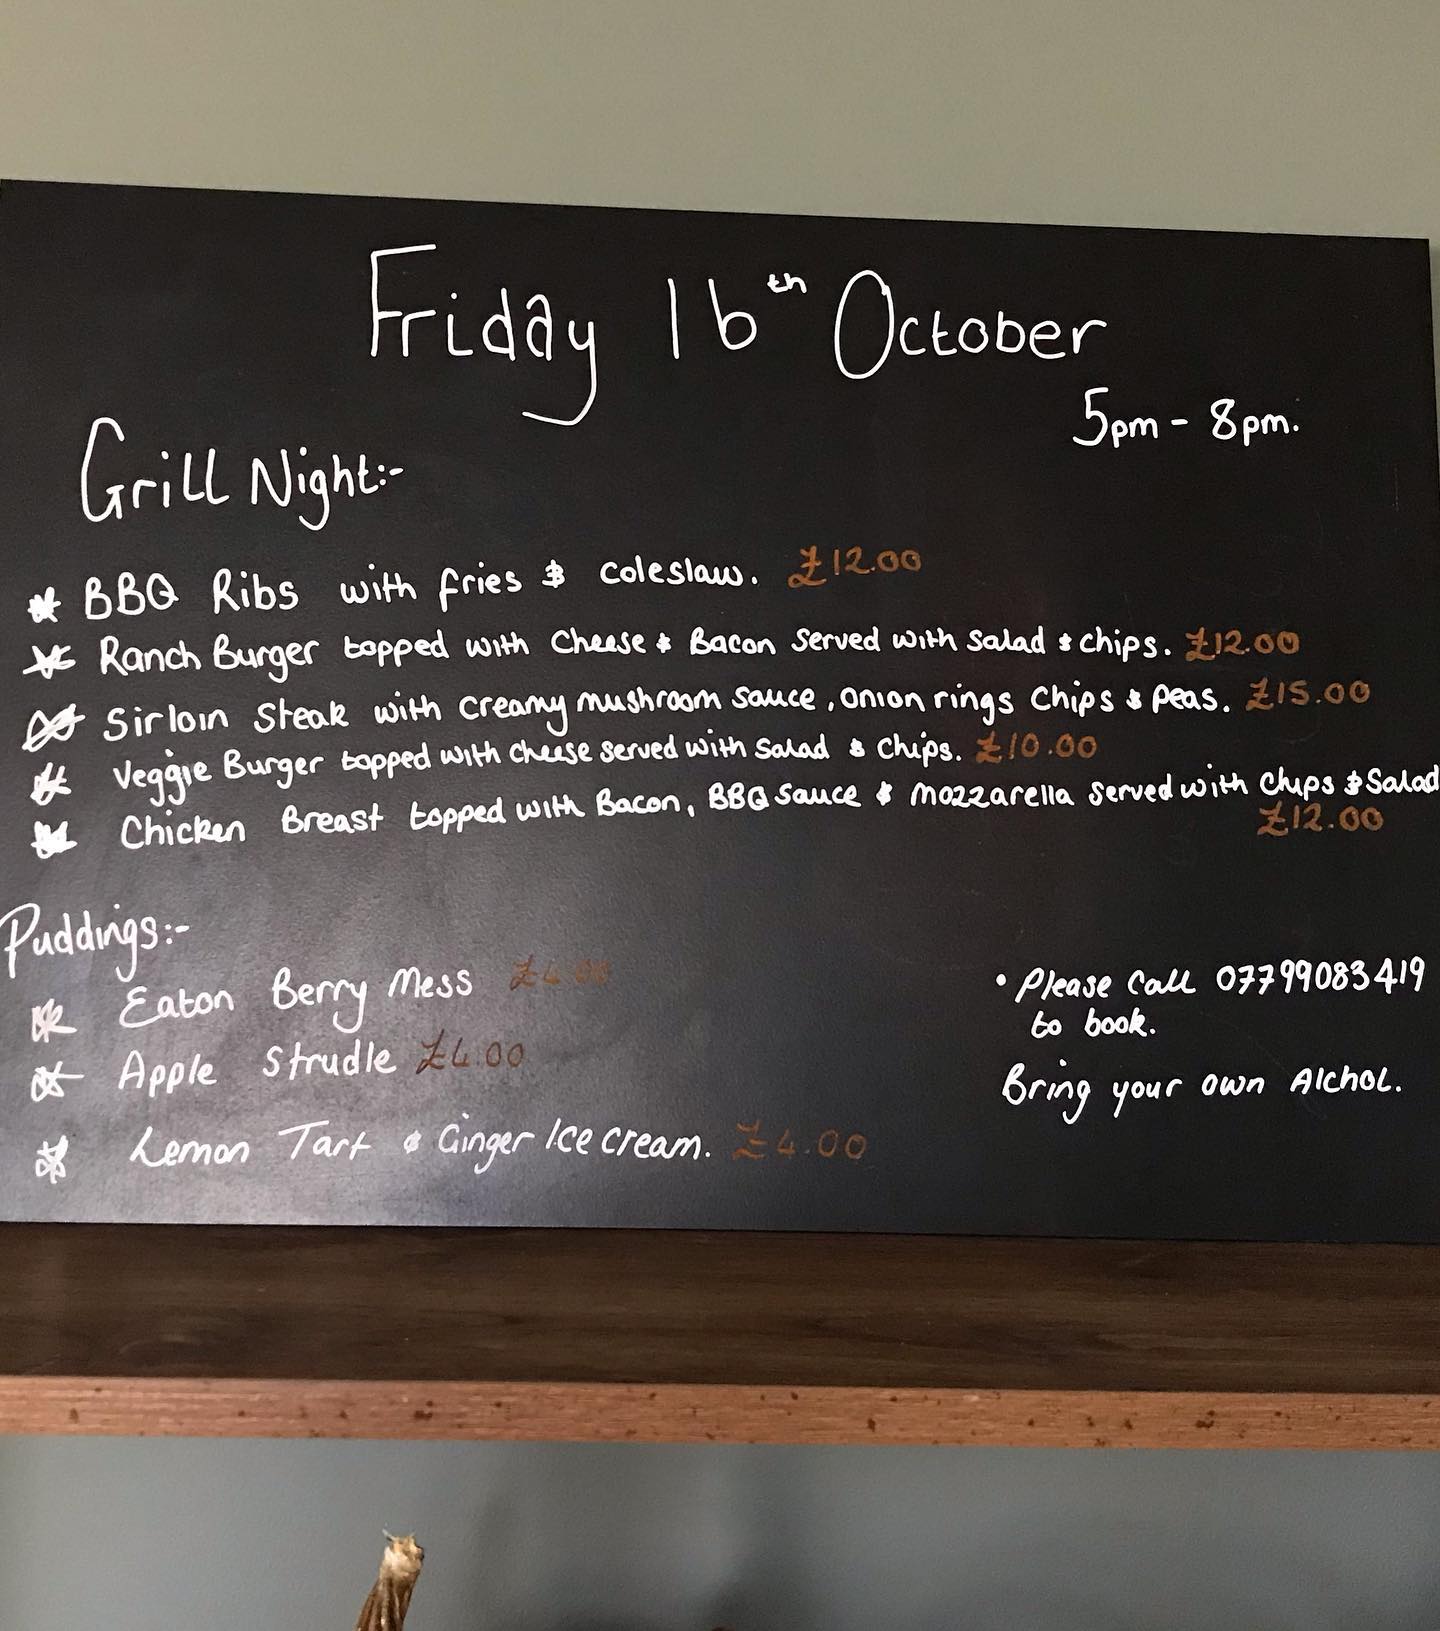 Friday 16th October
5pm - 8pm.
Grill Night:-
* BBQ Ribs with fries & coleslaw. £12.00
* Ranch Burger topped with Cheese & Bacon Served with Salad & chips. £12.00
* Sirloin Steak with creamy mushroom sauce, onion rings Chips & peas. £15.00
* Veggie Burger topped with cheese served with salad & chips. £10.00
* Chicken Breast topped with Bacon, BBQ sauce & mozzarella served with Chips & Salad
£12.00
Puddings:-
* Eaton Berry Mess £4.00
* Apple Strudle £4.00
* Lemon Tart & Ginger Ice cream. £4.00
• Please Call 07799083419
to book.
Bring your own Alchol.